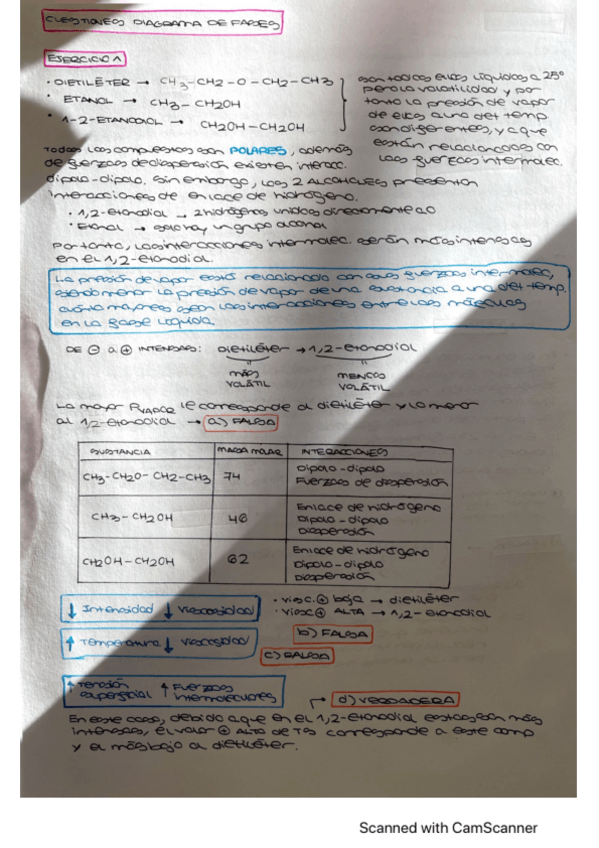 CUESTIONES DIAGRAMA DE FASES
EJERCICIO 1
• DIETILÉTER → CH3-CH2-O-CH2-CH3
• ETANOL → CH3-CH2OH
• 1-2-ETANODIOL → CH2OH-CH2OH
son todos ellos líquidos a 25º
pero la volatilidad y por
tanto la presión de vapor
de ellos a una det temp
son diferentes, ya que
están relacionados con
las fuerzas intermolec.
Todos los compuestos son POLARES, además
de fuerzas de dispersión existen interacc.
dipolo-dipolo. Sin embargo, los 2 ALCOHOLES presentan
interacciones de enlace de hidrógeno.
• 1,2-etanodial → 2 hidrógenos unidos directamente a O
• Etanol → solo hay un grupo alcohol
Por tanto, las interacciones intermolec. serán más intensas
en el 1,2-etanodial.
La presión de vapor está relacionada con esas fuerzas intermolec,
siendo menor la presión de vapor de una sustancia a una det temp.
cuanto mayores sean las interacciones entre las moléculas
en la fase líquida.
DE ⊖ a ⊕ INTENSAS: dietiléter → 1,2-etanodial
MÁS VOLÁTIL
MENOS VOLÁTIL
La mayor PVAPOR le corresponde al dietiléter y la menor
al 1,2-etanodial → a) FALSA
SUSTANCIA MASA MOLAR INTERACCIONES
CH3-CH2O-CH2-CH3 74 Dipolo-dipolo
Fuerzas de dispersión
CH3-CH2OH 46 Enlace de hidrógeno
Dipolo-dipolo
Dispersión
CH2OH-CH2OH 62 Enlace de hidrógeno
Dipolo-dipolo
Dispersión
↓ Intensidad ↓ Viscosidad
• visc. ⊕ baja → dietiléter
• visc ⊕ ALTA → 1,2-etanodial
↑ Temperatura ↓ Viscosidad
b) FALSA
c) FALSA
↑ Tensión superficial ↑ Fuerzas intermoleculares
d) VERDADERA
En este caso, debido a que en el 1,2-etanodial estas son más
intensas, el valor ⊕ ALTO de TS corresponde a este comp
y el más bajo al dietiléter.
Scanned with CamScanner